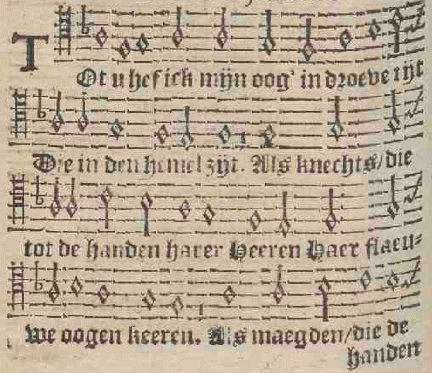 TOt u hef ick mijn oog' in droeve tijt
Die in den hemel zijt. Als knechts/die
tot de handen harer Heeren Haer flaeu-
we oogen keeren. Als maegden/die de
handen